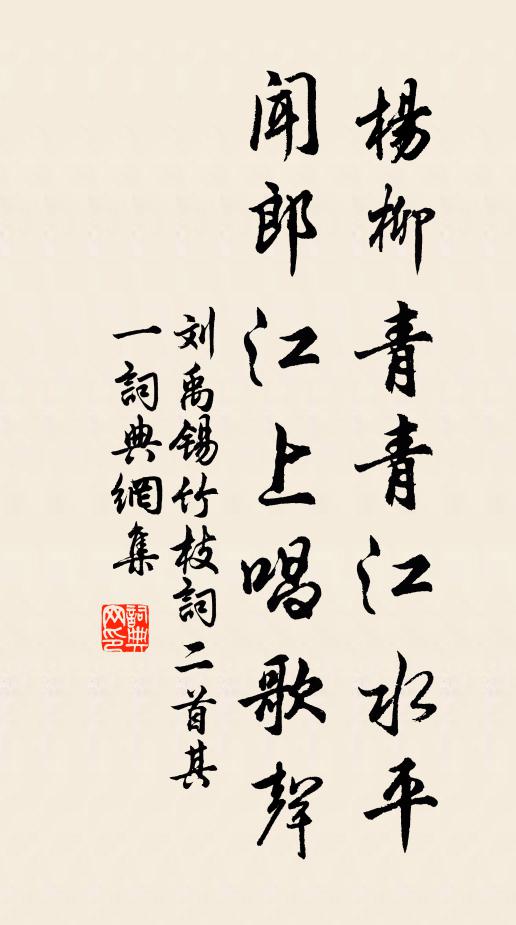 楊柳青青江水平
聞郎江上唱歌聲
刘禹锡竹枝詞二首其
一詞典網集
詞典
网印